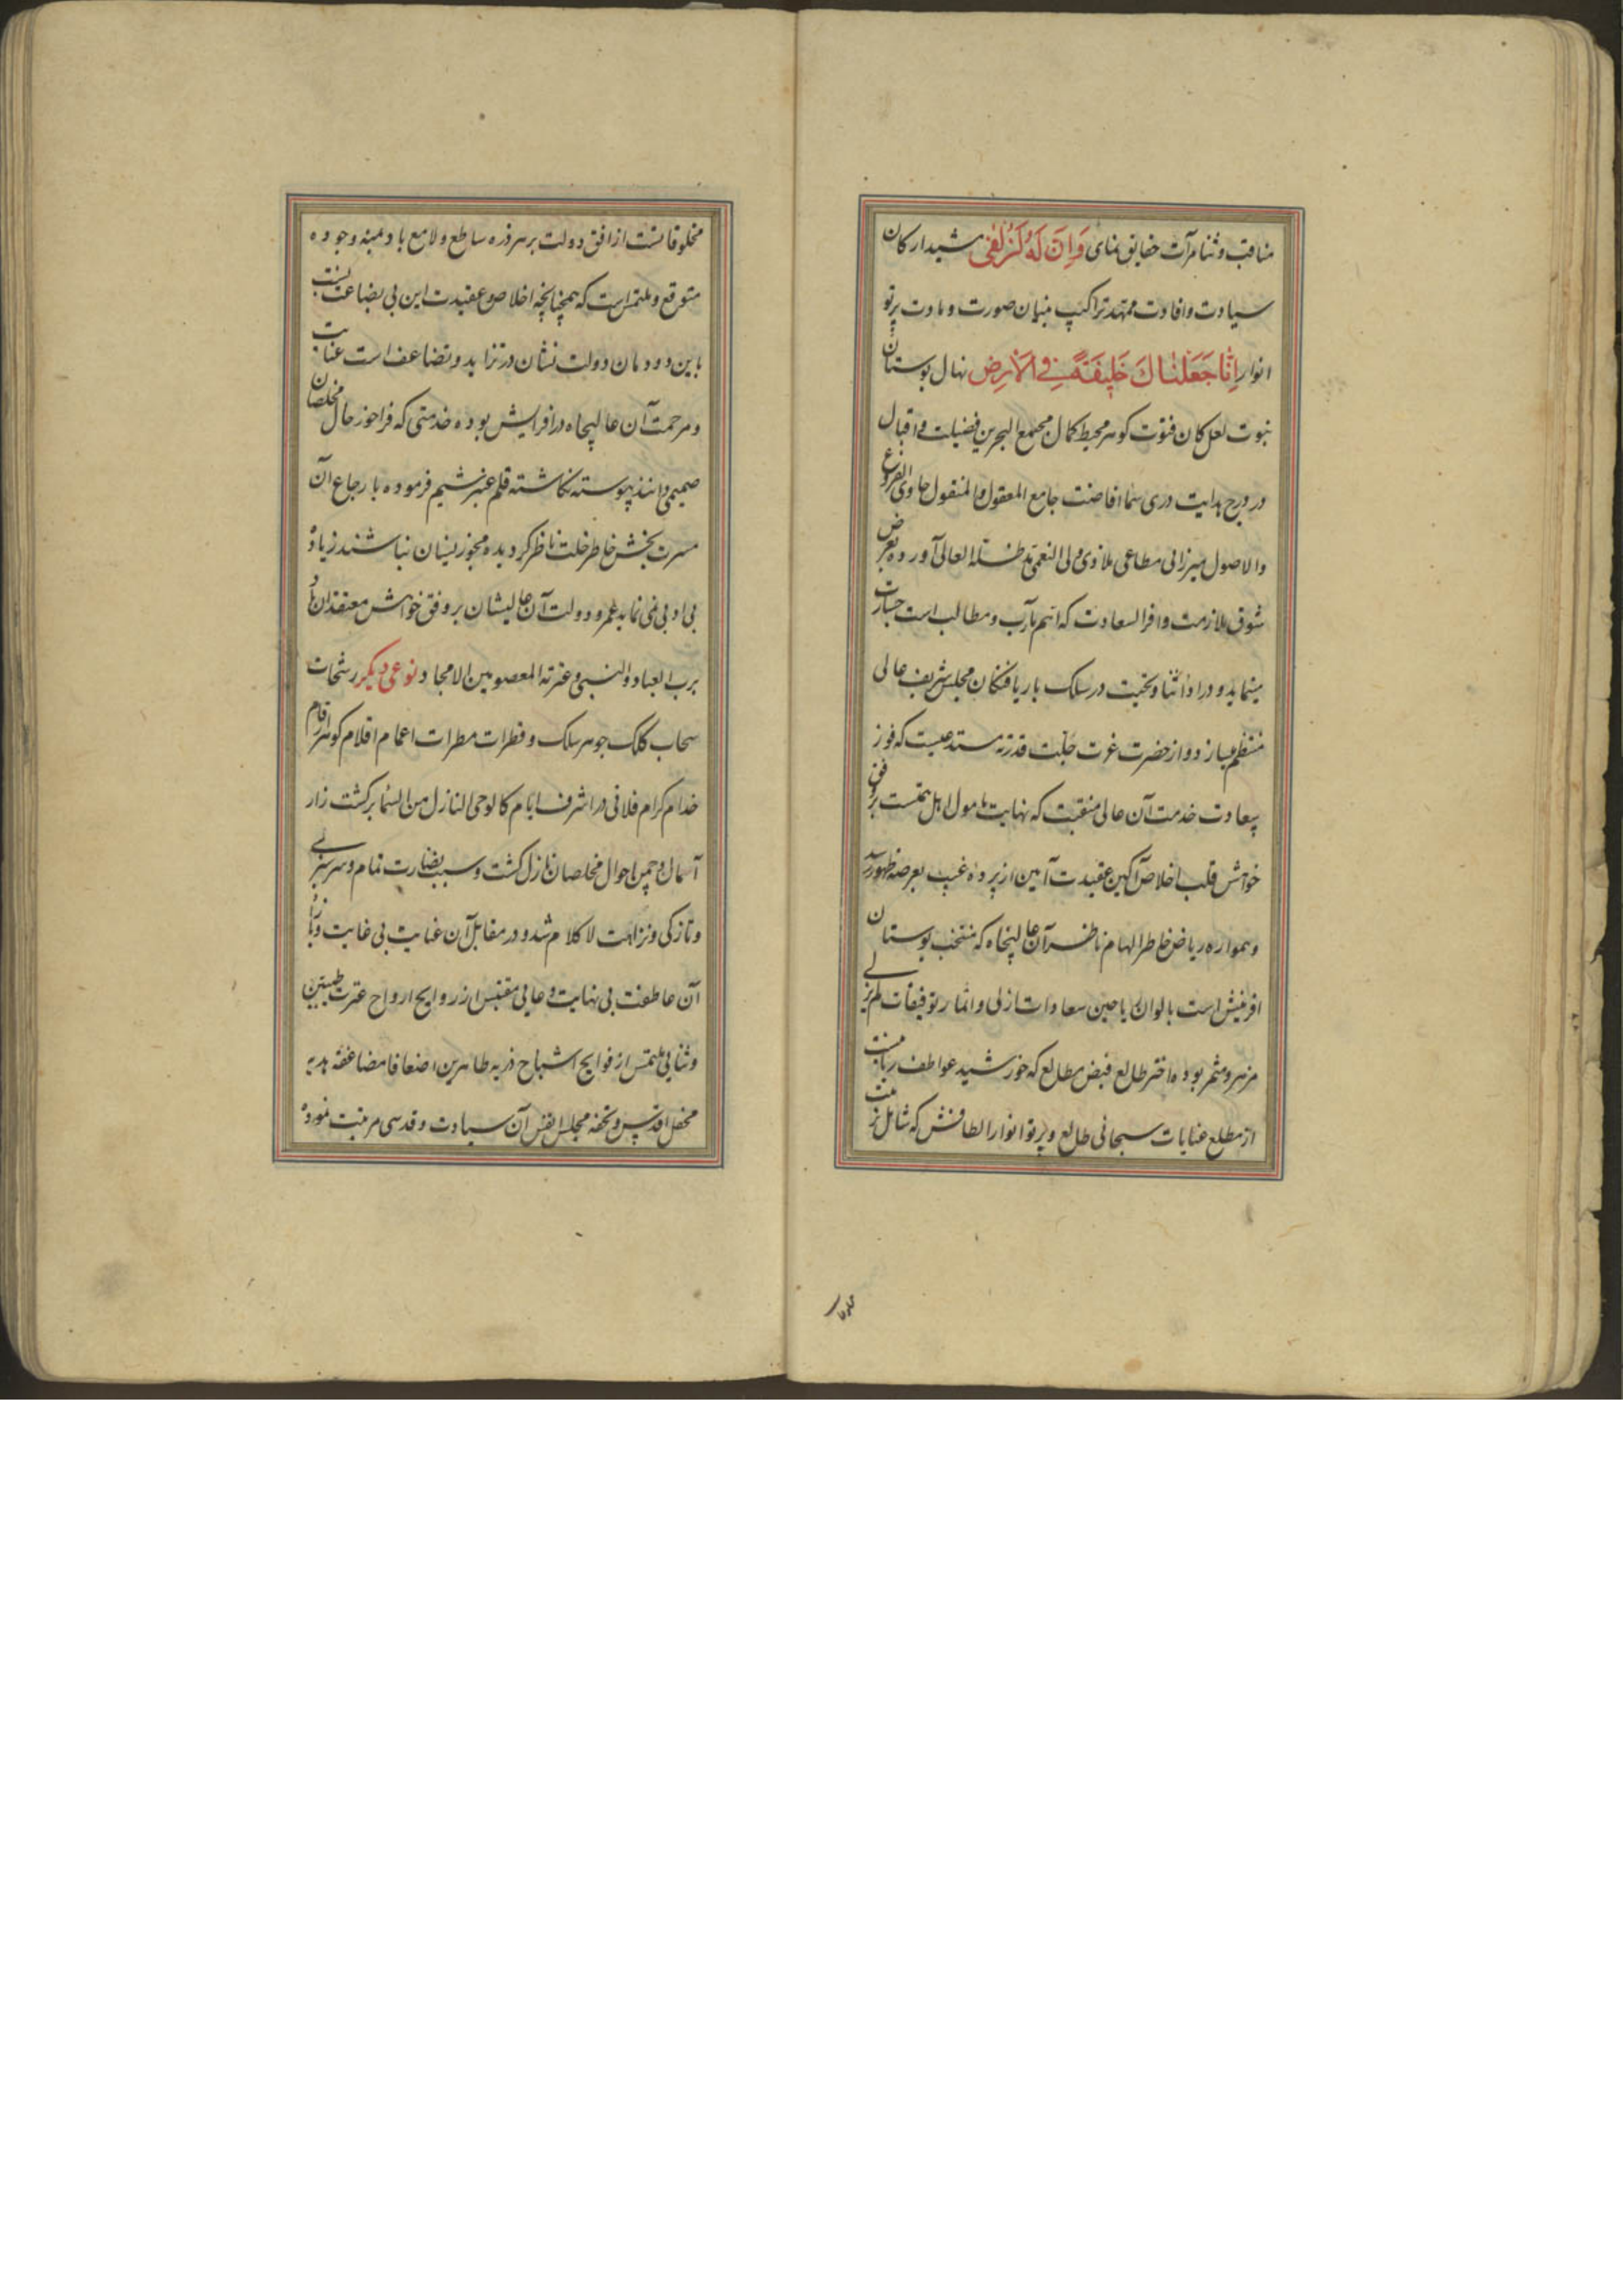 مناقب و ثنا مرآت حقایق نمای وَاِنَّ لَهُ لَزُلْفی مشید ارکان
سیادت و افادت ممهد تراکیب بنیان صورت و مادت پرتو
انوار اِنّا جَعَلْناكَ خَلِیفَةً فِی الْاَرْضِ نهال بوستان
نبوت لعل کان فتوت کوهر محیط کمال مجمع البحرین فضیلت و اقبال
در درج هدایت دری سما افاضت جامع المعقول و المنقول حاوی الفروع
والاصول میرزائی مطاعی ملاذی ولی النعمی مد ظله العالی آورده بعرض
شوق ملازمت وافر السعادت که اهم مآرب و مطالب است جسارت
مینماید و در اداء ثنا و تحیت در سلک بار یافتکان مجلس شریف عالی
منتظم میسازد و از حضرت عزت جلت قدرته مستدعیست که فوز
بسعادت خدمت آن عالی منقبت که نهایت مأمول اهل همتست بر وفق
خواهش قلب اخلاص آکین عقیدت آیین از پرده غیب بعرصه ظهور رسد
و همواره ریاض خاطر الهام ناظر آن عالیجاه که منتخب بوستان
افرینش است بالوان ریاحین سعادات ازلی و اثمار توفیقات لم یزلی
مزهر و مثمر بوده اختر طالع فیض مطالع که خورشید عواطف ربانیست
از مطلع عنایات سبحانی طالع و پرتو انوار الطافش که شامل
مخلوقاتست از افق دولت بر هر ذره ساطع و لامع باد بمنه وجوده
متوقع و ملتمس است که همچنانچه اخلاص و عقیدت این بی بضاعت نسبت
باین دودمان دولت نشان در تزاید و تضاعف است عنایت
و مرحمت آن عالیجاه در افزایش بوده خدمتی که فراخور حال مخلصان
صمیمی دانند پیوسته نکاشته قلم عنبر شمیم فرموده بارجاع آن
مسرت بخش خاطر خلت ناظر کردیده مجوز نسیان نباشند زیاده
بی ادبی نمی نماید عمر و دولت آن عالیشان بر وفق خواهش معتقدان باد
برب العباد و النبی و عترته المعصومین الامجاد نوعی دیکر رشحات
سحاب کلک جوهر سلک و قطرات مطرات اعمام اقلام کوهر ارقام
خدام کرام فلانی در اشرف ایام کالوحی النازل من السما بر کشت زار
آمال و چمن احوال مخلصان نازل کشت و سبب نضارت تمام و سر سبزی
و تازکی و نزاهت لا کلام شد و در مقابل آن عنایت بی غایت و بازاء
آن عاطفت بی نهایت دعایی مقتبس از روایح ارواح عترت طیبین
و ثنایی ملتمس از فوایح اشباح ذریه طاهرین اضعافا مضاعفه هدیه
محفل اقدس و تحفه مجلس انفس آن سیادت و قدسی مرتبت نموده